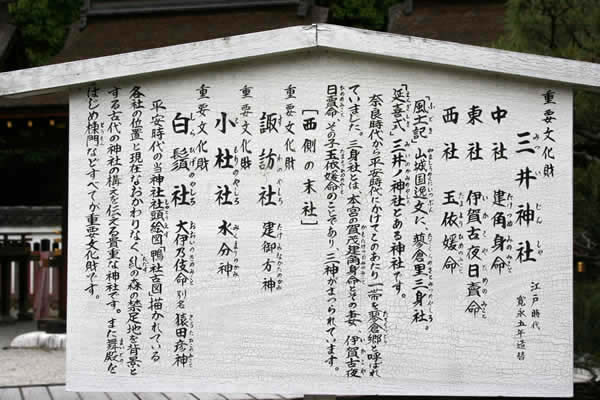 重要文化財
三井神社
みついじんしゃ
江戸時代
寛永五年造替
中社 建角身命
東社 伊賀古夜日賣命
西社 玉依媛命
「風土記」山城国逸文に「蓼倉里三身社」。
延喜式「三井ノ神社」とある神社です。
奈良時代から平安時代にかけてこのあたり一帯を蓼倉郷と呼ばれ
ていました。三身社とは、本宮の賀茂建角身命とその妻、伊賀古夜
日賣命、その子玉依媛命のことであり、三神がまつられています。
[西側の末社]
重要文化財
諏訪社 建御方神
重要文化財
小杜社 水分神
重要文化財
白鬚社 大伊乃伎命 別名 猿田彦神
平安時代の当神社社頭絵図「鴨社古図」描かれている
各社の位置と現在なおかわりなく、糺の森の禁足地を背景と
する古代の神社の構えを伝える貴重な神社です。また舞殿を
はじめ棟門などすべてが重要文化財です。